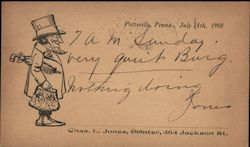 Pottsville, Penna., July 18th, 1908
7 A M Sunday.
very quiet Burg.
nothing doing
Jones
Chas. L. Jones, Printer, 364 Jackson St.